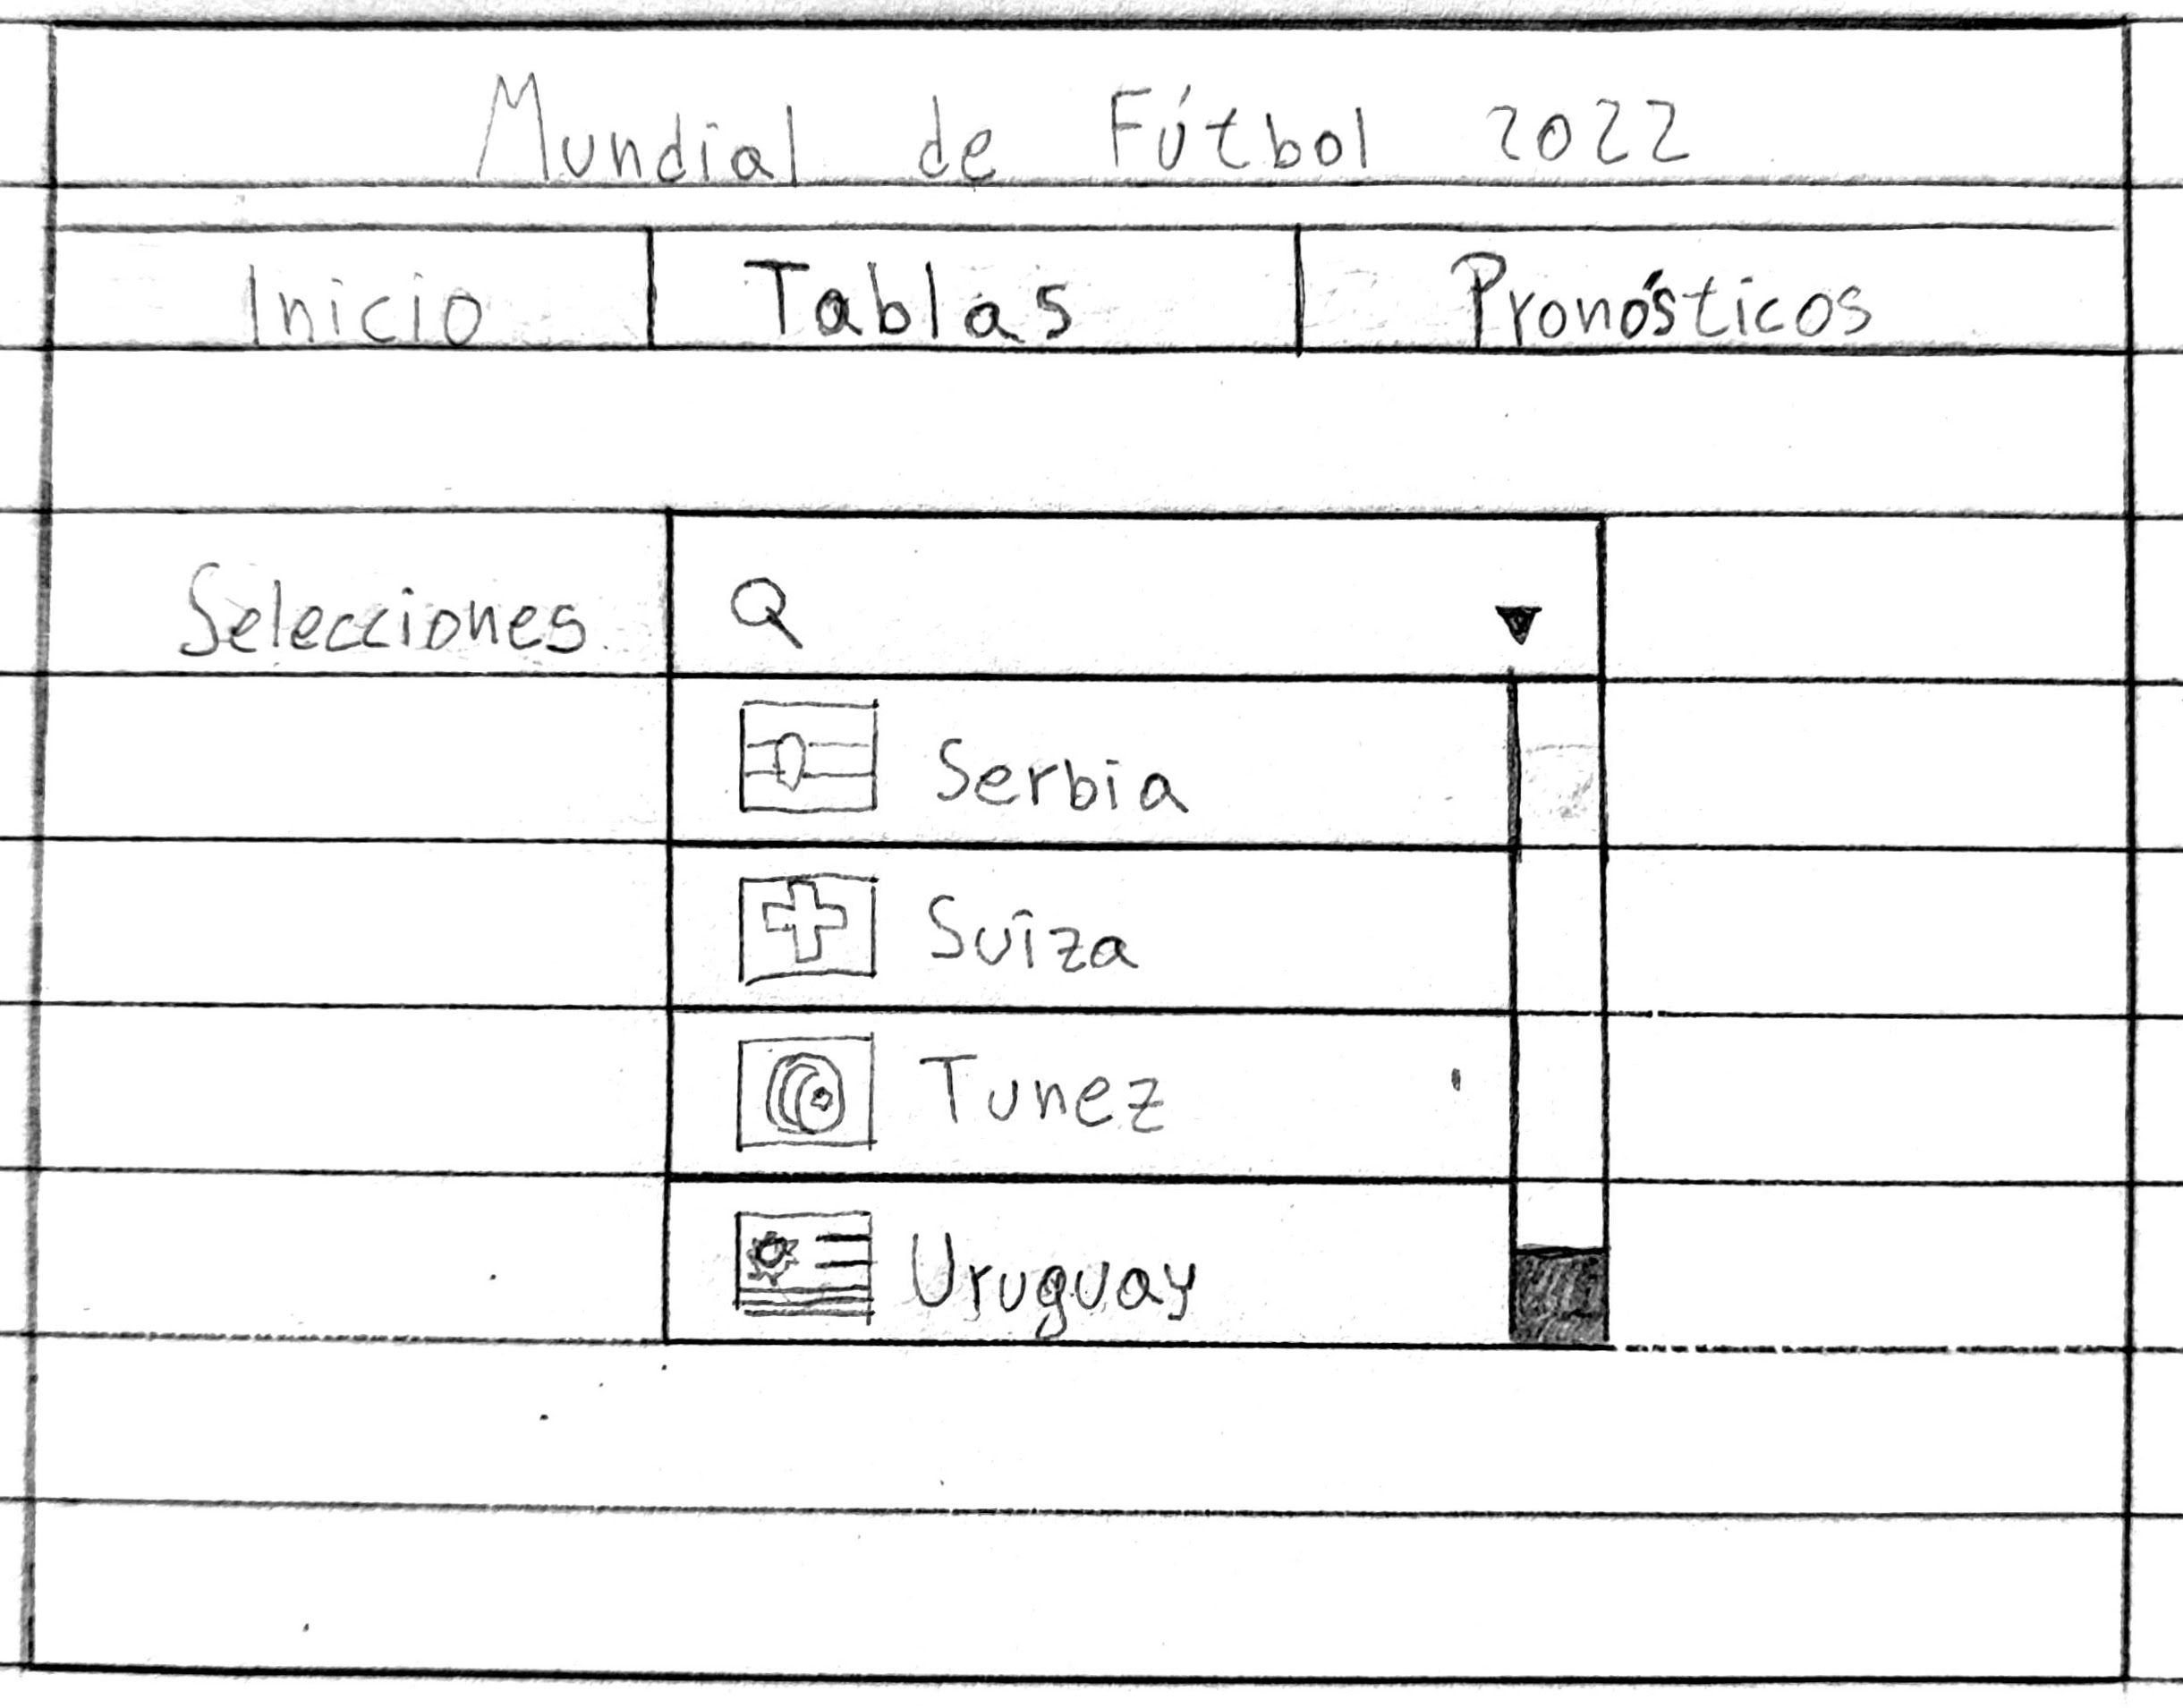 Mundial de Fútbol 2022
Inicio Tablas Pronósticos
Selecciones
Serbia
Suiza
Tunez
Uruguay